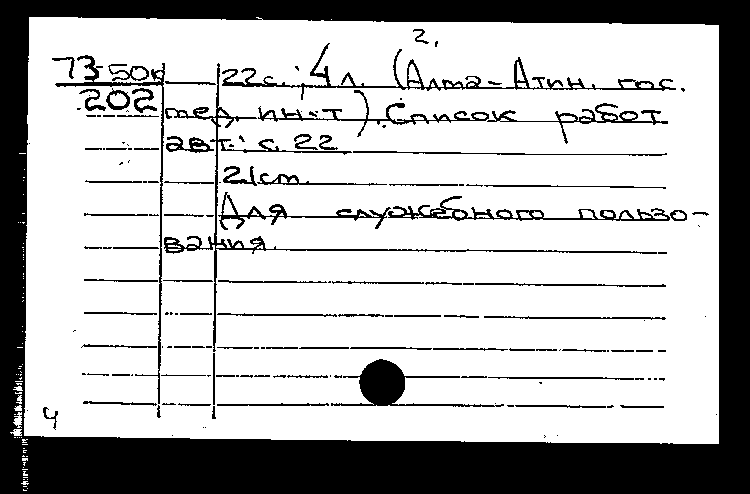 2.
73-50к 22с.; 4л. (Алма-Атин. гос.
202 мед. ин-т). Список работ
авт.: с. 22
21см.
Для служебоного пользо-
вания.
4